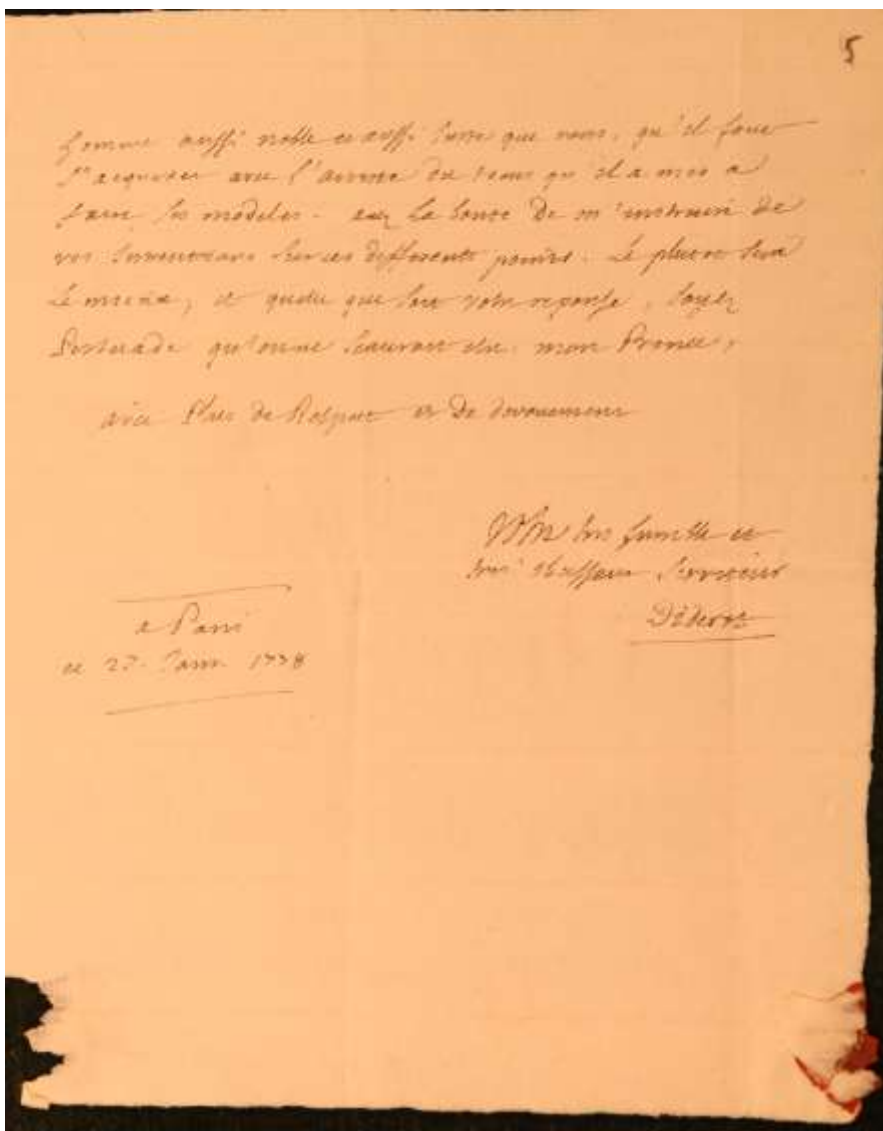 5
homme aussi noble et aussi juste que vous, qu'il faut
s'acquitter avec l'artiste du tems qu'il a mis a
faire les modeles. ayez la bonté de m'instruire de
vos intentions sur ces differents points. Le plutot sera
Le mieux, et quelle que soit votre reponse, soyez
persuadé qu'on ne sauroit etre, mon Prince,
avec Plus de Respect et De devouement
Votre tres humble et
tres obeissant serviteur
Diderot
a Paris
ce 27. Janv.